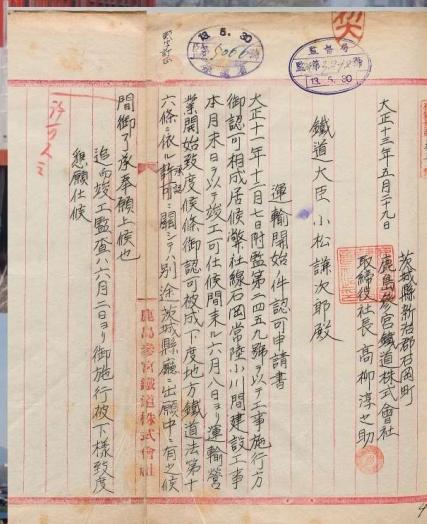 大正十三年五月二十九日
茨城縣新治郡石岡町
鹿島參宮鐵道株式會社
取締役社長 高柳淳之助
鐵道大臣 小松謙次郎殿
運輸開始ノ件認可申請書
大正十一年十二月七日附監第二四五九號ヲ以テ工事施行方
御認可相成居候弊社線石岡常陸小川間建設工事
本月末日ヲ以テ竣工可仕候間来ル六月八日ヨリ運輸營
業開始致度候條御認可被成下度地方鐵道法第十
六條ニ依ル ニ關シテハ別途茨城縣廳ニ出願中ニ有之候
間御了承奉願上候也
追而竣工監査ハ六月二日ヨリ御施行被下様致度
懇願仕候
鹿島參宮鐵道株式會社
13.5.30
監督局
13.5.30